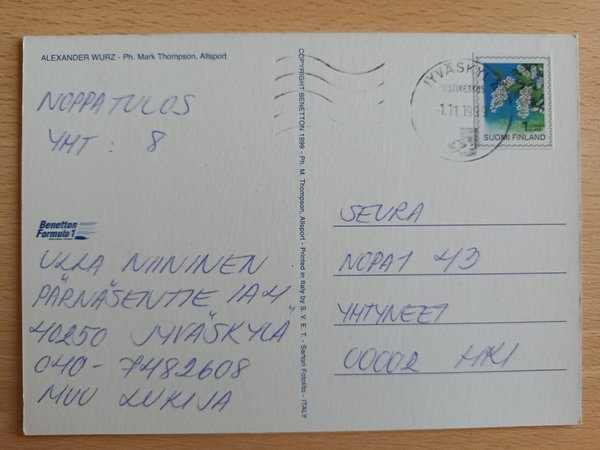 ALEXANDER WURZ - Ph. Mark Thompson, Allsport
NOPPATULOS
YHT : 8
Benetton
Formula 1
ULLA NIININEN
PÄRNÄSENTIE 1A 4
40250 JYVÄSKYLÄ
040-7482608
MUU LUKIJA
COPYRIGHT BENETTON 1999 - Ph. M. Thompson, Allsport - Printed in Italy by S. V. E. T. - Sartori Fotolito - ITALY
JYVÄSKY
-1.11.199
1
SUOMI FINLAND
SEURA
NOPAT 43
YHTYNEET
00002 HKI